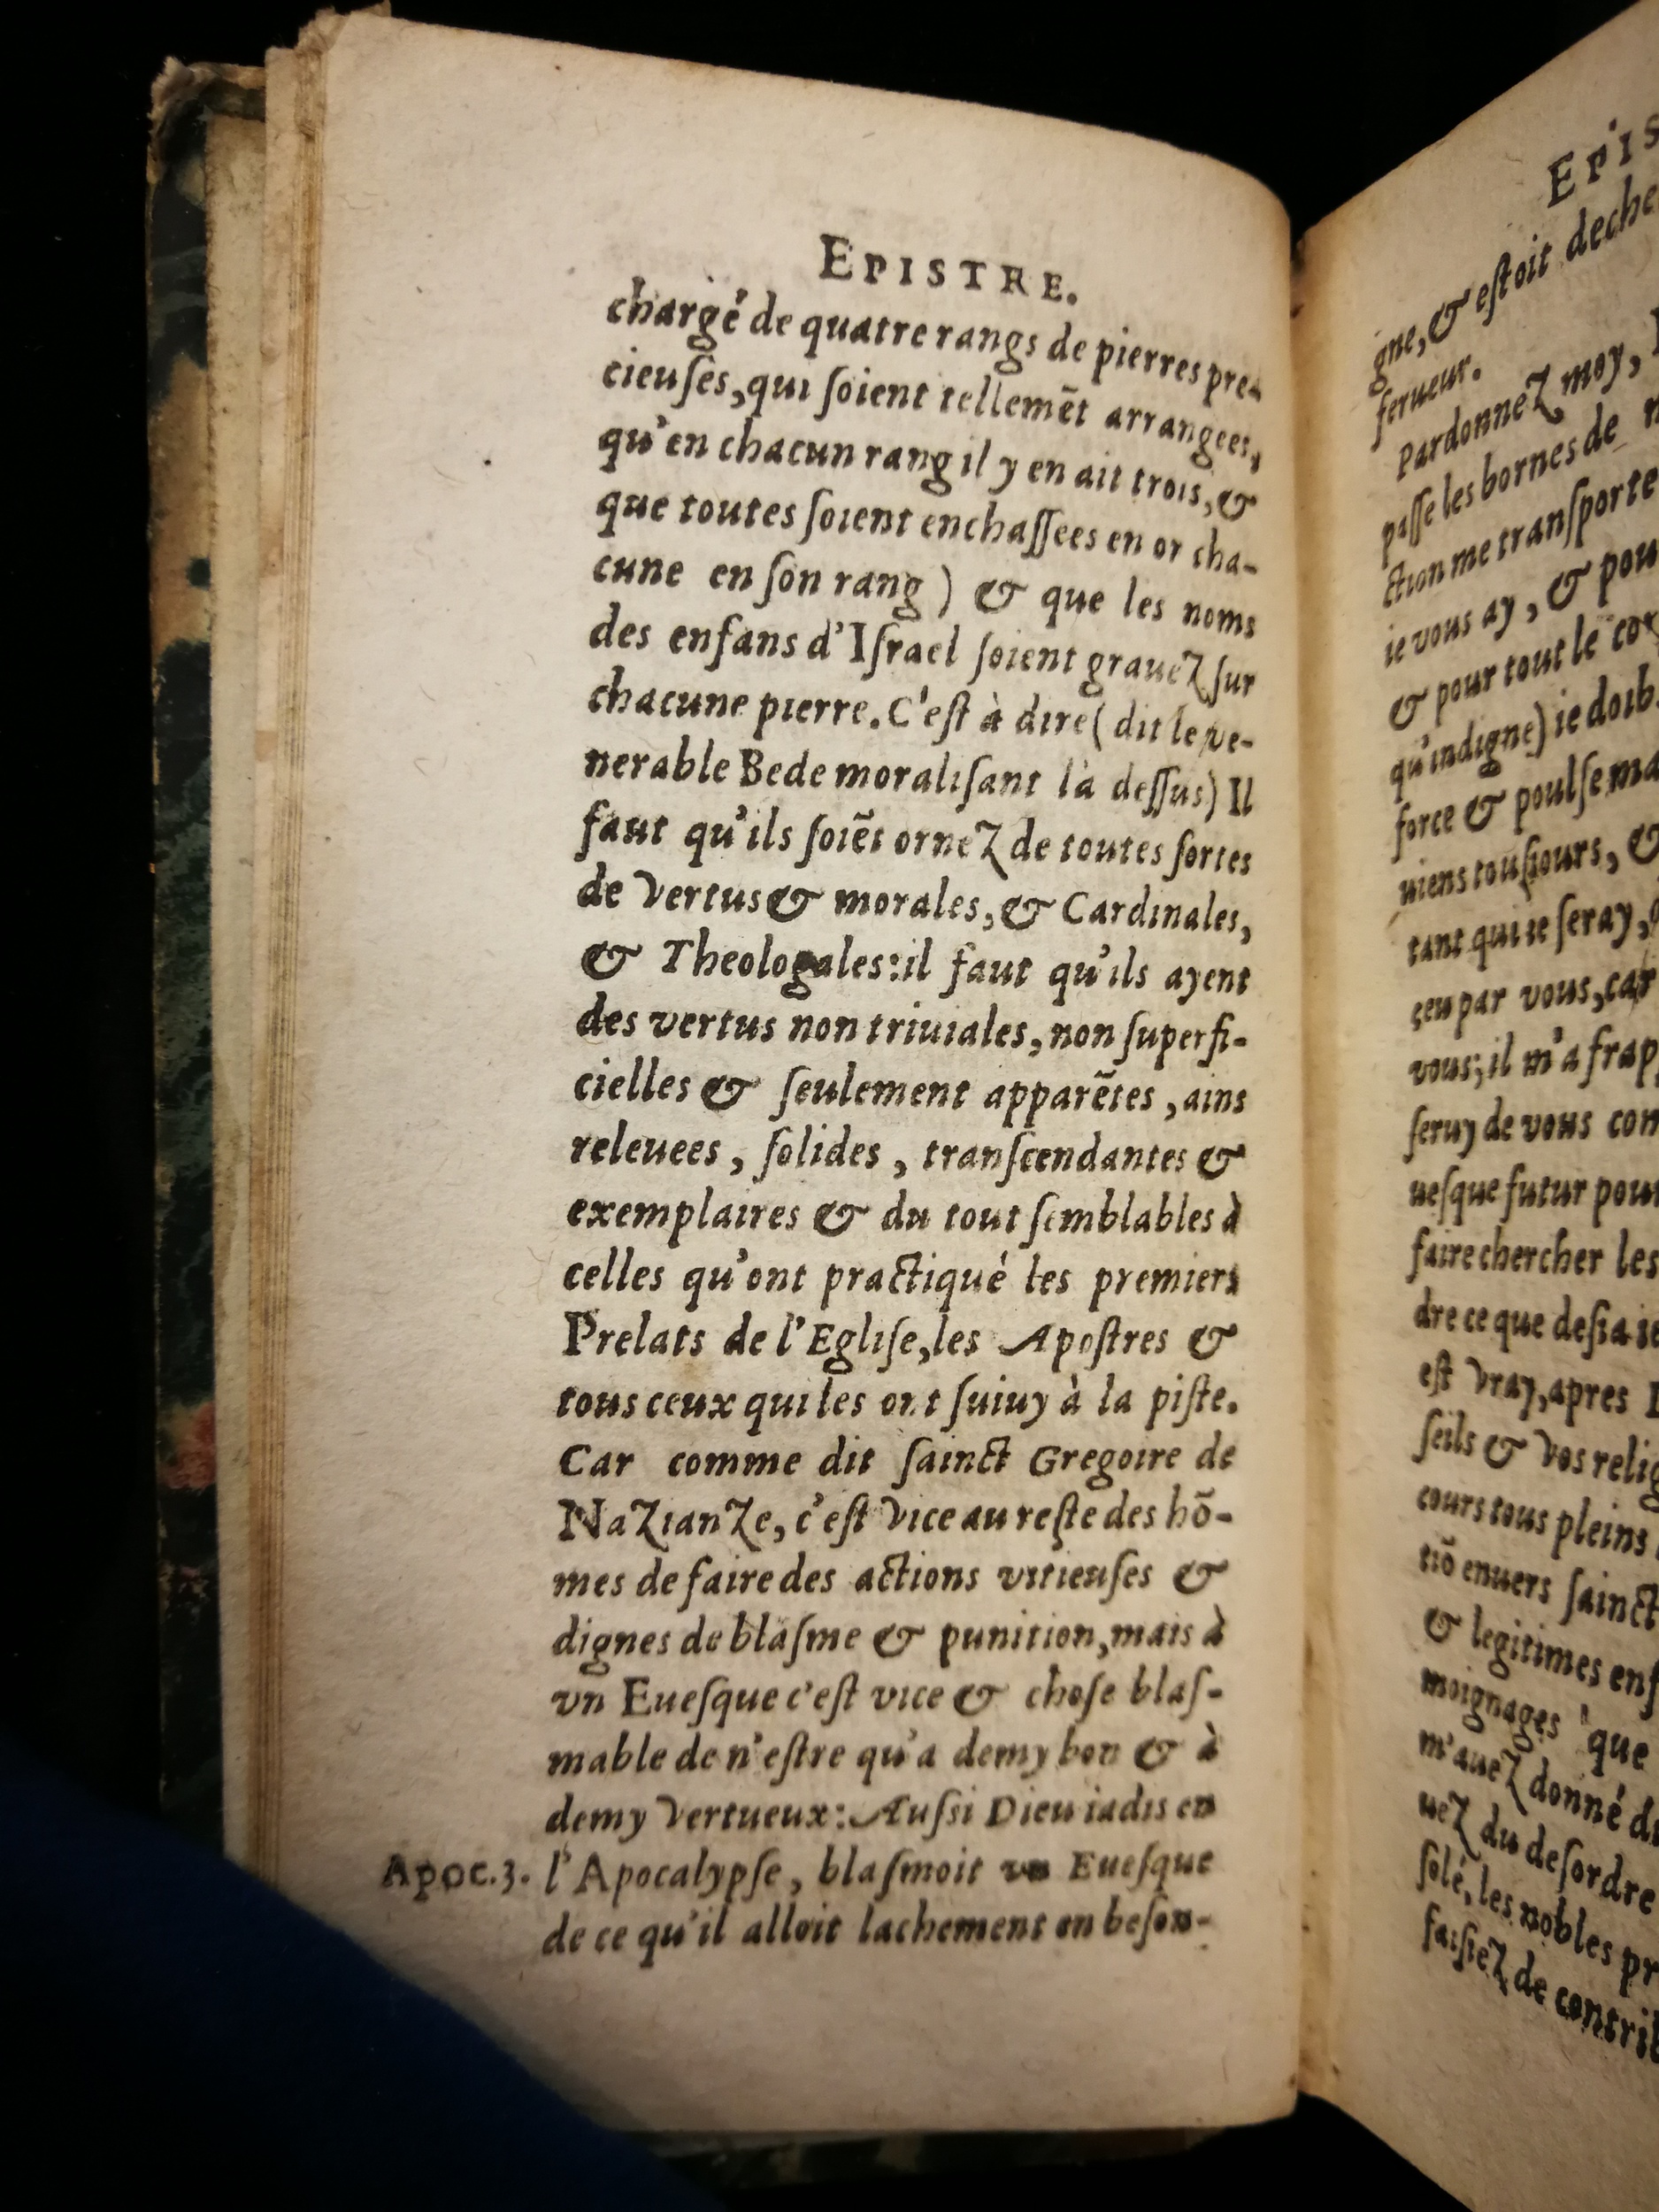 EPISTRE.
chargé de quatre rangs de pierres pre-
cieuſes, qui ſoient tellemẽt arrangees,
qu'en chacun rang il y en ait trois, &
que toutes ſoient enchaſſees en or cha-
cune en ſon rang) & que les noms
des enfans d'Iſrael ſoient grauez ſur
chacune pierre. C'eſt à dire (dit le ve-
nerable Bede moraliſant là deſſus) Il
faut qu'ils ſoiẽt ornez de toutes ſortes
de vertus & morales, & Cardinales,
& Theologales: il faut qu'ils ayent
des vertus non triuiales, non ſuperfi-
cielles & ſeulement apparẽtes, ains
releuees, ſolides, tranſcendantes &
exemplaires & du tout ſemblables à
celles qu'ont practiqué les premiers
Prelats de l'Egliſe, les Apoſtres &
tous ceux qui les ont ſuiuy à la piſte.
Car comme dit ſainct Gregoire de
Nazianze, c'eſt vice au reſte des hõ-
mes de faire des actions vitieuſes &
dignes de blaſme & punition, mais à
vn Eueſque c'eſt vice & choſe blaſ-
mable de n'eſtre qu'a demy bon & à
demy vertueux: Auſsi Dieu iadis en
Apoc.3. l'Apocalypſe, blaſmoit vn Eueſque
de ce qu'il alloit lachement en beſon-
EPIS
gne, & eſtoit deche
ferueur.
Pardonnez moy,
paſſe les bornes de
ction me tranſporte
ie vous ay, & pou
& pour tout le cor
qu'indigne) ie doib
force & poulſe ma
uiens touſiours, &
tant qui ie ſeray,
ceu par vous, car
vous; il m'a frap
ſeruy de vous com
ueſque futur pour
faire chercher les
dre ce que deſia ie
eſt vray, apres
ſeils & vos relig
cours tous pleins
tiõ enuers ſainct
& legitimes enf
moignages que
m'auez donné d
uez du deſordre
ſolé, les nobles pr
faiſiez de contrib